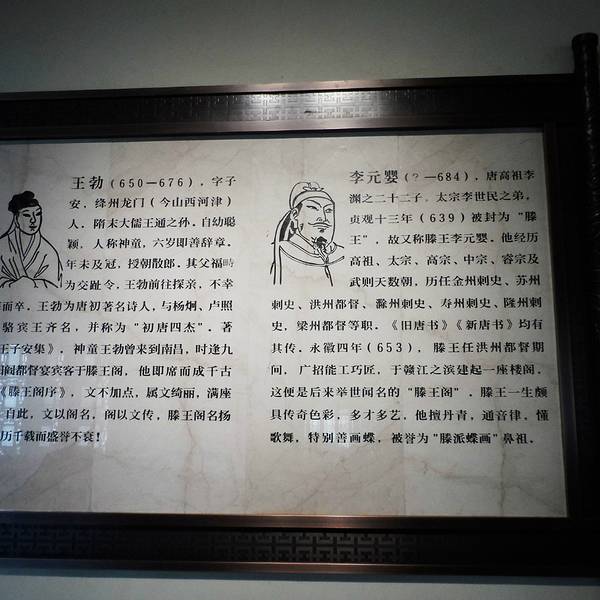 王勃（650—676），字子
安，绛州龙门（今山西河津）
人，隋末大儒王通之孙。自幼聪
颖，人称神童，六岁即善辞章。
年未及冠，授朝散郎。其父福畤
为交趾令，王勃前往探亲，不幸
而卒。王勃为唐初著名诗人，与杨炯、卢照
骆宾王齐名，并称为“初唐四杰”。著
王子安集》。神童王勃曾来到南昌，时逢九
阎都督宴宾客于滕王阁，他即席而成千古
《滕王阁序》，文不加点，属文绮丽，满座
自此，文以阁名，阁以文传，滕王阁名扬
历千载而盛誉不衰！
李元婴（？—684），唐高祖李
渊之二十二子，太宗李世民之弟，
贞观十三年（639）被封为“滕
王”，故又称滕王李元婴，他经历
高祖、太宗、高宗、中宗、睿宗及
武则天数朝，历任金州刺史、苏州
刺史、洪州都督、滁州刺史、寿州刺史、隆州刺
史，梁州都督等职，《旧唐书》《新唐书》均有
其传。永徽四年（653），滕王任洪州都督期
间，广招能工巧匠，于赣江之滨建起一座楼阁，
这便是后来举世闻名的“滕王阁”。滕王一生颇
具传奇色彩，多才多艺，他擅丹青，通音律，懂
歌舞，特别善画蝶，被誉为“滕派蝶画”鼻祖。